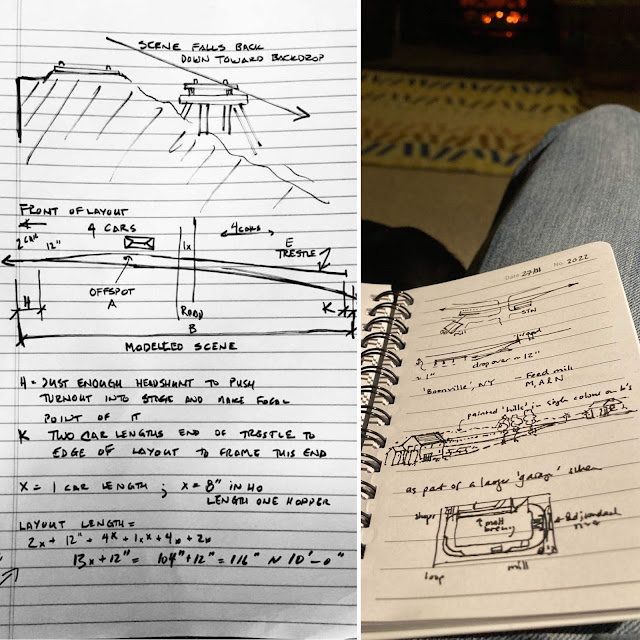 SCENE FALLS BACK
DOWN TOWARD BACKDROP
FRONT OF LAYOUT
4 CARS
4 CARS
12"
1x
E
TRESTLE
OFFSPOT
A
H
ROAD
B
K
MODELLED SCENE
H = JUST ENOUGH HEADSHUNT TO PUSH
TURNOUT INTO STAGE AND MAKE FOCAL
POINT OF IT
K TWO CAR LENGTHS END OF TRESTLE TO
EDGE OF LAYOUT TO FRAME THIS END
X = 1 CAR LENGTH ; X = 8" IN HO
LENGTH ONE HOPPER
LAYOUT LENGTH =
2x + 12" + 4x + 1x + 4x + 2x
13x + 12" = 104" + 12" = 116" ~ 10'-0"
Date 27/11 No. 2022
STN
drop over ~ 12"
~ 1"
'Boonville', NY - Feed mill
M, A & N
painted 'hills' in
as part of a larger 'garage'
shape
small
loop
mill